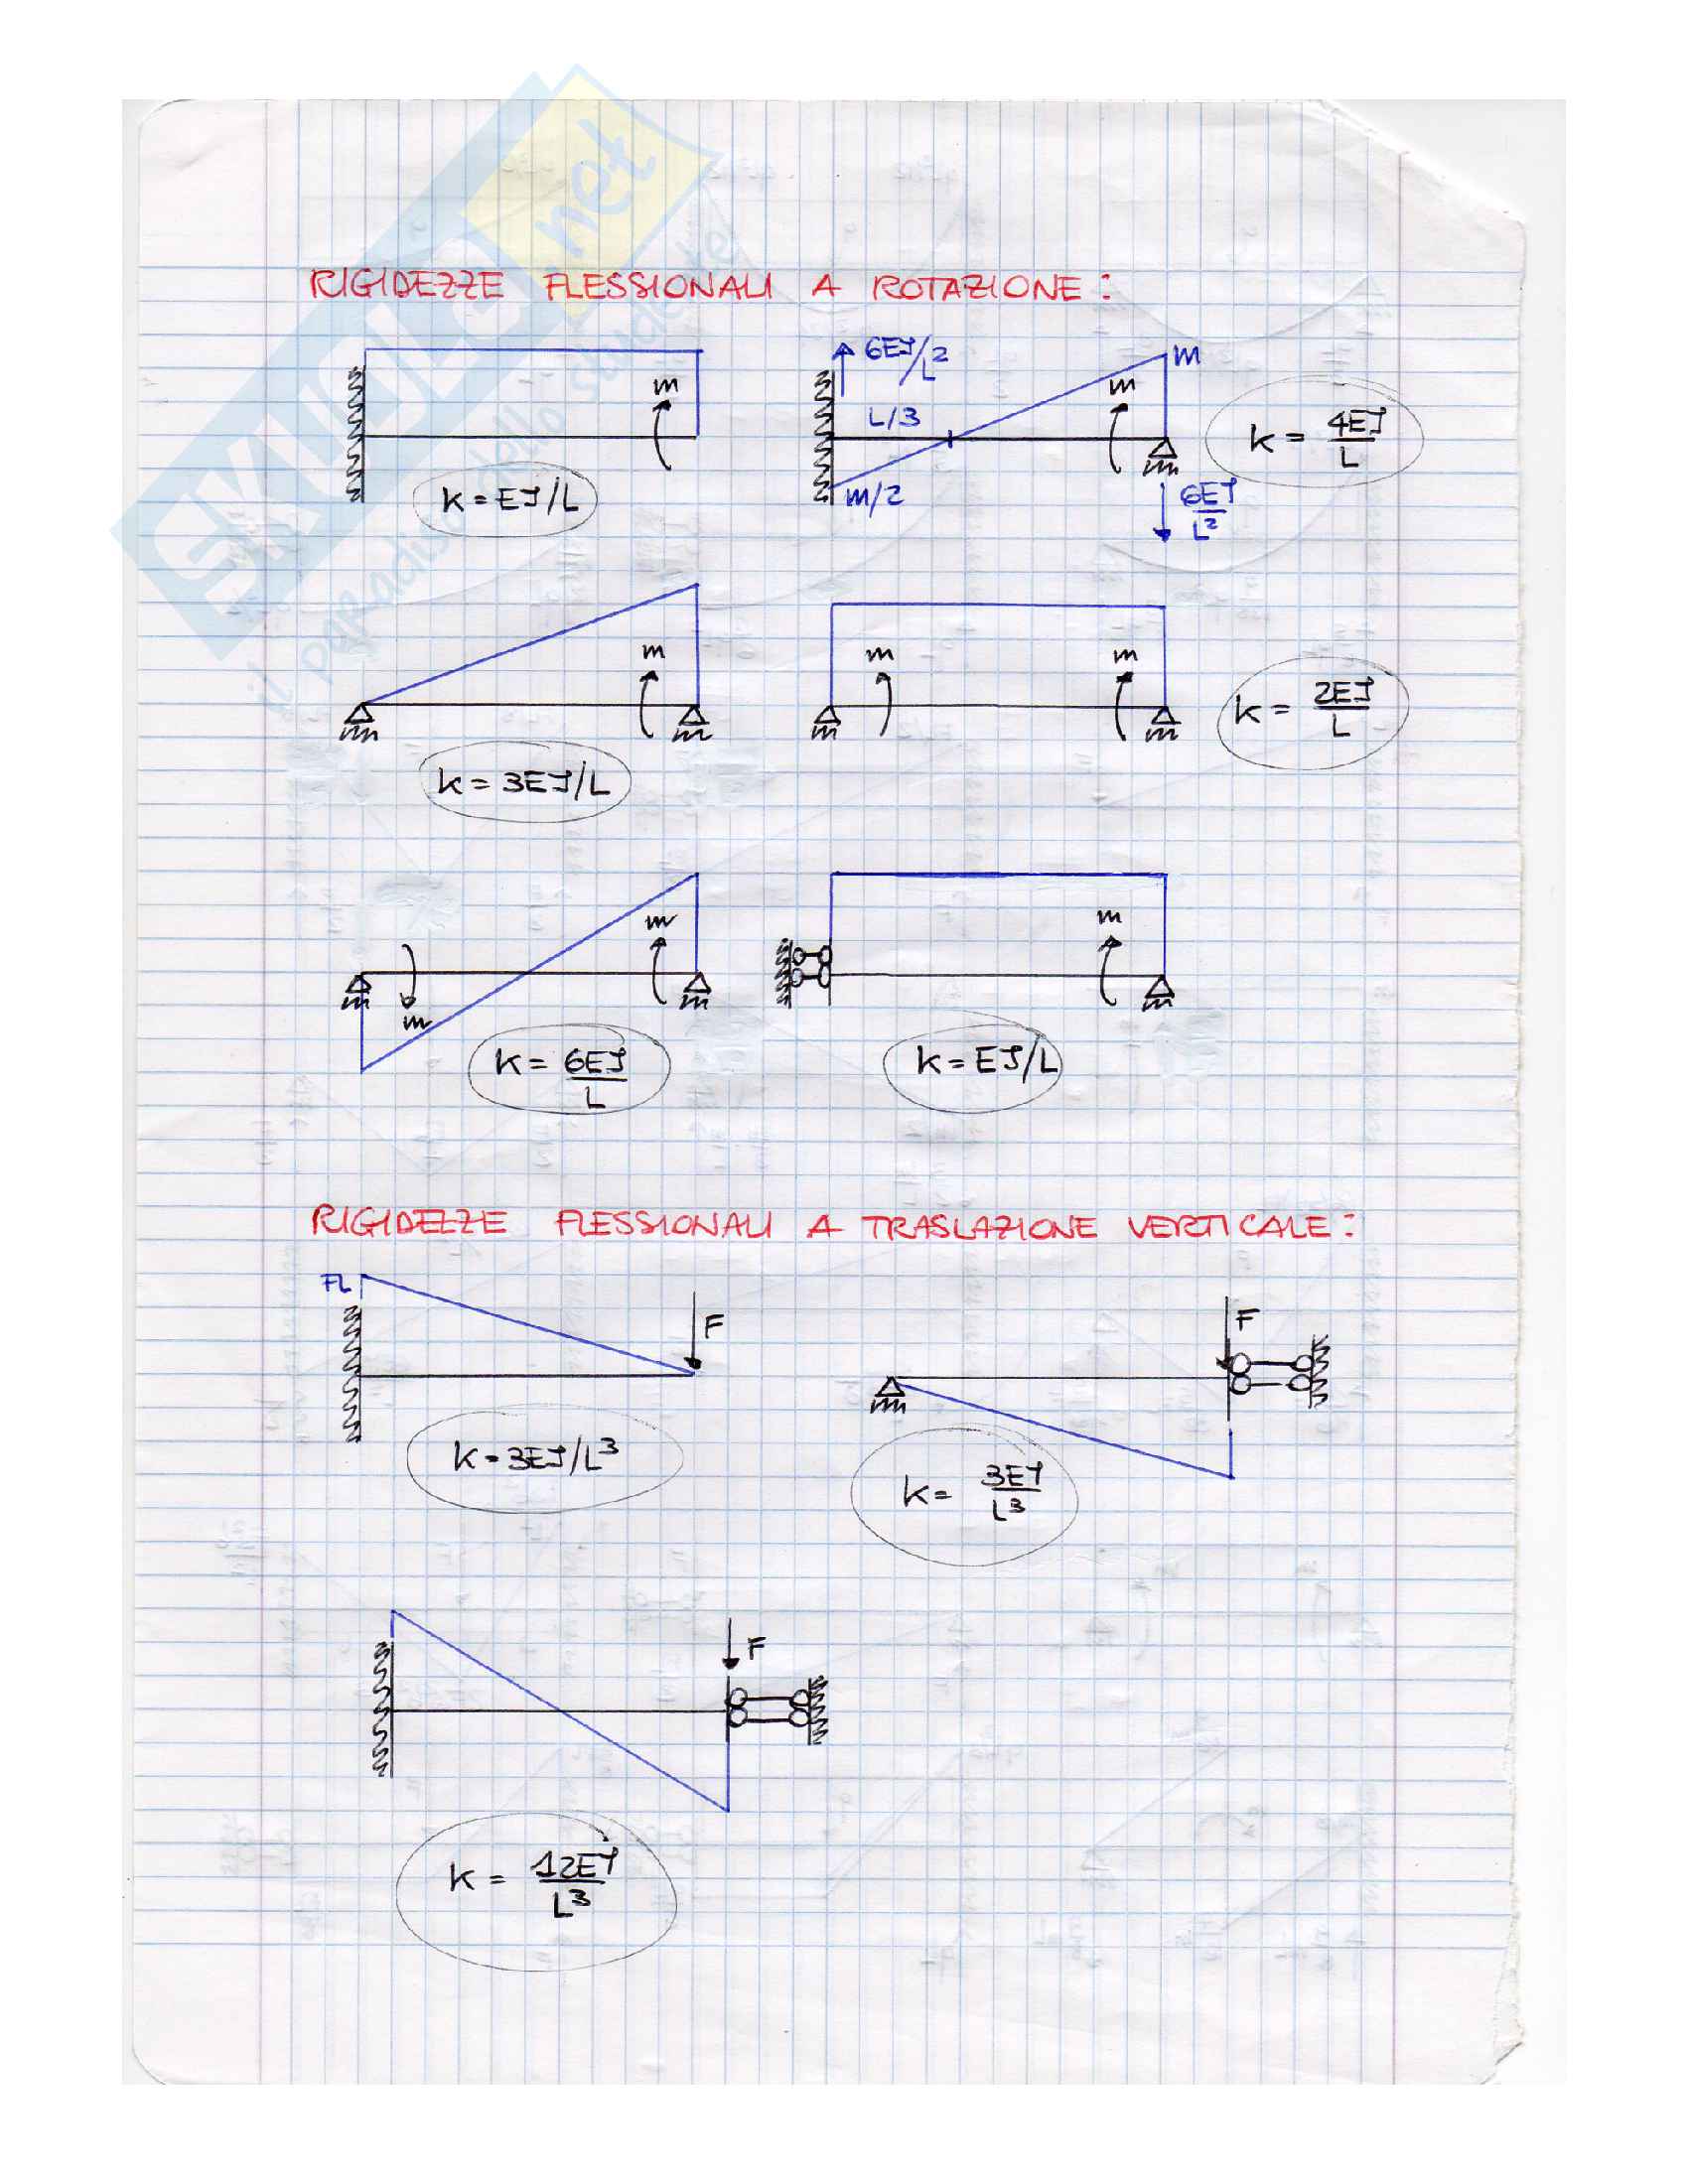 SKUOLA.net
il paradiso dello studente
RIGIDEZZE FLESSIONALI A ROTAZIONE:
m
K = EJ/L
6EJ/L²
L/3
m
m
m/2
6EJ/L²
K = 4EJ/L
m
K = 3EJ/L
m
m
K = 2EJ/L
m
m
K = 6EJ/L
m
K = EJ/L
RIGIDEZZE FLESSIONALI A TRASLAZIONE VERTICALE:
FL
F
K = 3EJ/L³
F
K = 3EJ/L³
F
K = 12EJ/L³